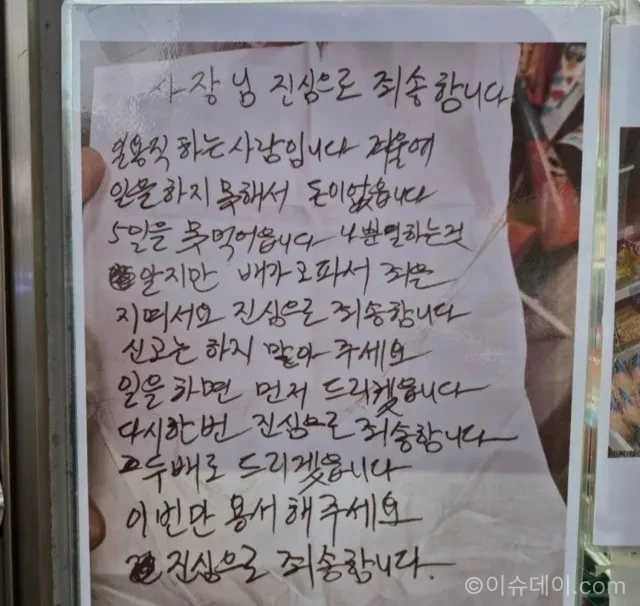 사장님 진심으로 죄송합니다.
일용직 하는사람입니다 겨울에
일을하지 못해서 돈이없읍니다
5일을 못먹어읍니다 나쁜일하는것
알지만 배가고파서 죄을
지며서요 진심으로 죄송합니다
신고는 하지 말아 주세요
일을하면 먼저 드리켔읍니다
다시한번 진심으로 죄송합니다
두배로 드리겠읍니다
이번만 용서해주세요
진심으로 죄송합니다.
©이슈데이.com